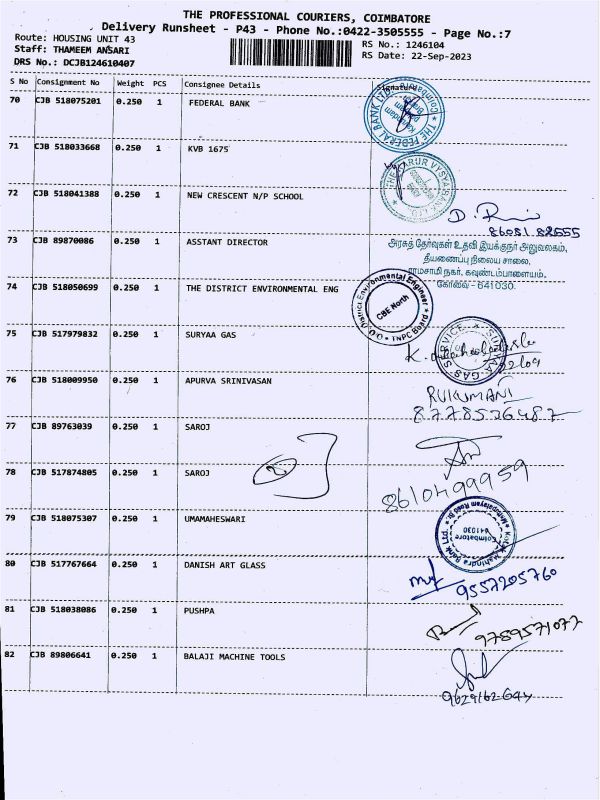 THE PROFESSIONAL COURIERS, COIMBATORE
Delivery Runsheet - P43 - Phone No.:0422-3505555 - Page No.:7
Route: HOUSING UNIT 43
RS No.: 1246104
Staff: THAMEEM ANSARI
RS Date: 22-Sep-2023
DRS No.: DCJB124610407
S No Consignment No Weight PCS Consignee Details Signature
70 CJB 518075201 0.250 1 FEDERAL BANK
THE FEDERAL BANK LTD. Coimbatore
71 CJB 518033668 0.250 1 KVB 1675
VYSYA BANK LTD.
72 CJB 518041388 0.250 1 NEW CRESCENT N/P SCHOOL
73 CJB 89870086 0.250 1 ASSTANT DIRECTOR
அரசுத் தேர்வுகள் உதவி இயக்குநர் அலுவலகம்,
தீயணைப்பு நிலைய சாலை,
ராமசாமி நகர், கவுண்டம்பாளையம்,
கோவை - 641030.
74 CJB 518050699 0.250 1 THE DISTRICT ENVIRONMENTAL ENG
District Environmental Engineer
CBE North
TNPC Board
75 CJB 517979832 0.250 1 SURYAA GAS
GAS SERVICE
76 CJB 518009950 0.250 1 APURVA SRINIVASAN
RUKUMANI
8778536487
77 CJB 89763039 0.250 1 SAROJ
78 CJB 517874805 0.250 1 SAROJ
8610499959
79 CJB 518075307 0.250 1 UMAMAHESWARI
Kotak Mahindra Bank Ltd
Coimbatore
641030
80 CJB 517767664 0.250 1 DANISH ART GLASS
9557205760
81 CJB 518038086 0.250 1 PUSHPA
9789571077
82 CJB 89806641 0.250 1 BALAJI MACHINE TOOLS